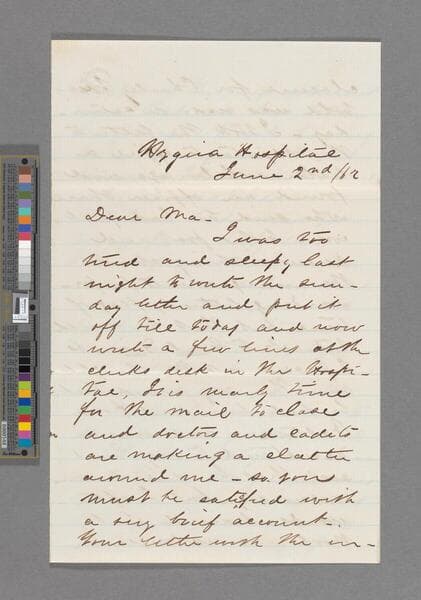 Hygeia Hospital
June 2nd/62
Dear Ma-
I was too
tired and sleepy last
night to write the Sun-
day letter and put it
off till today and now
write a few lines at the
clerks desk in the Hospi-
tal, It is nearly time
for the mail to close
and doctors and cadets
are making a clatter
around me - so you
must be satisfied with
a very brief account.
Your letter with the in-